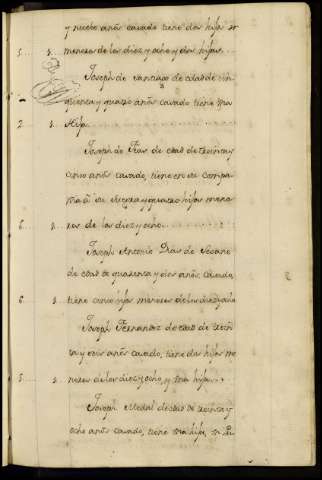 y nuebe años casado tiene dos hijos
5 .. s. menores de los diez y ocho y dos hijas
Joseph de Santiago de edad de cin
quenta y quatro años casado tiene una
2 .. s. Hija
Joseph de Frias de edad de treinta y
cinco años casado, tiene en su compa
ñia a su suegra y quatro hijos meno
6 .. s. res de los diez y ocho
Joseph Antonio Dias de Seoane
de edad de quarenta y dos años, casado,
6 .. s. tiene cinco hijos menores de los diez y ocho
Joseph Fernandez de edad de trein
ta y seis años casado, tiene dos hijos me
5 .. s. nores de los diez y ocho, y una hija
Joseph Medal de edad de treinta y
ocho años casado, tiene una hija,